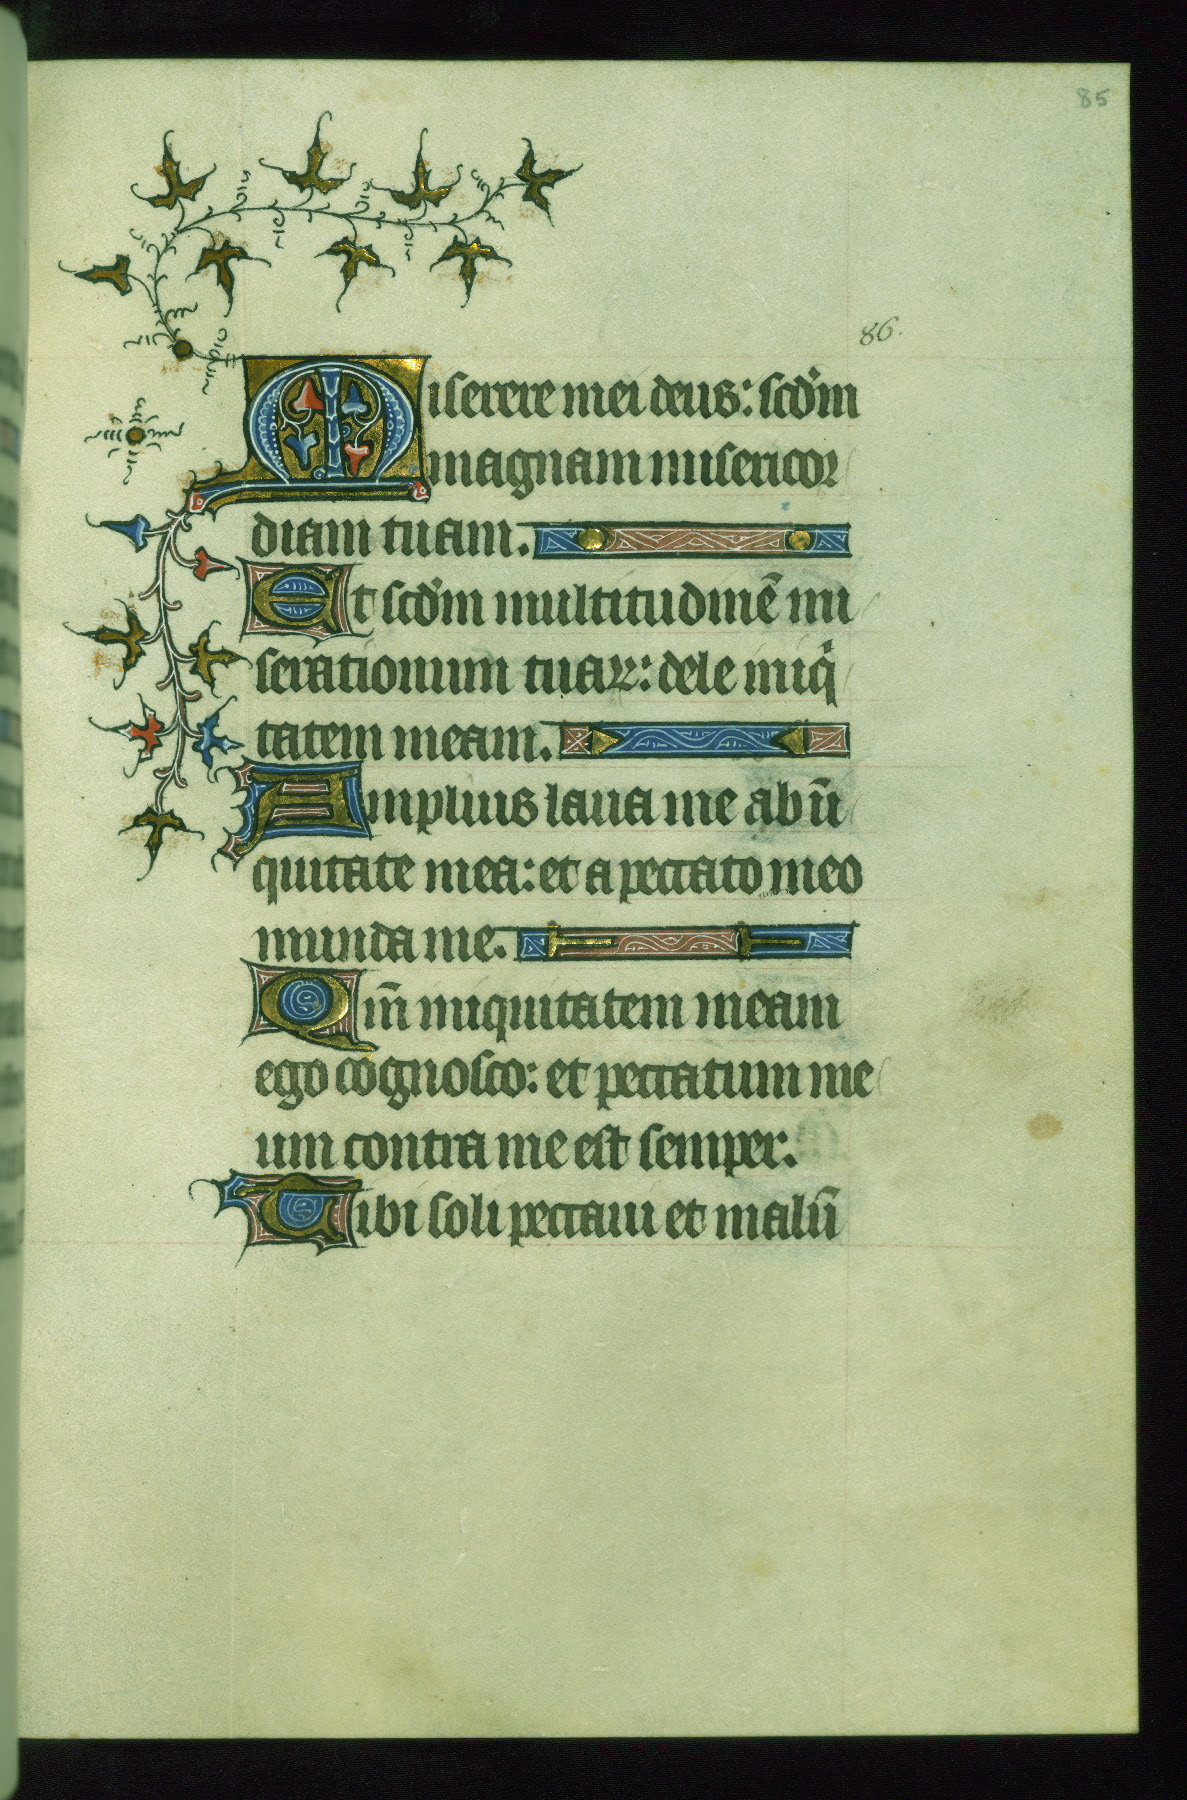 85
86.
Miserere mei deus: scdm
magnam misericor
diam tuam.
Et scdm multitudinē mi
serationum tuaꝝ: dele iniqͥ
tatem meam.
Amplius laua me ab ini
quitate mea: et a peccato meo
munda me.
Qm̄ iniquitatem meam
ego cognosco: et peccatum me
um contra me est semper.
Tibi soli peccaui et malū